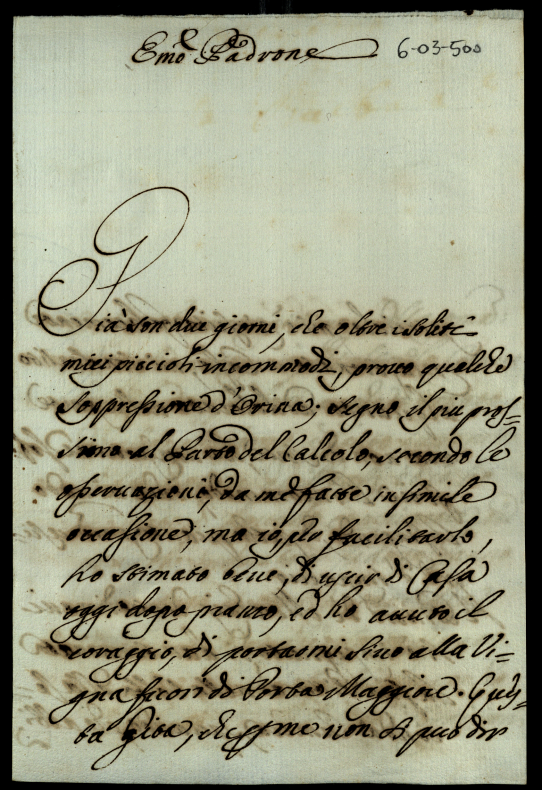 Em̃o Padrone 6-03-500
Già son due giorni, che oltre i soliti
miei piccioli incommodi, provo qualche
soppressione d'Orina; segno il piu pros=
simo al Parto del Calcolo, secondo le
osservazioni, da me fatte in simile
occasione, ma io, per facilitarlo,
ho stimato bene, di uscir di Casa
oggi dopo pranzo, ed ho avuto il
coraggio, di portarmi sino alla Vi=
gna fuori di Porta Maggiore. Ques=
ta Gita, che per me non si può dir